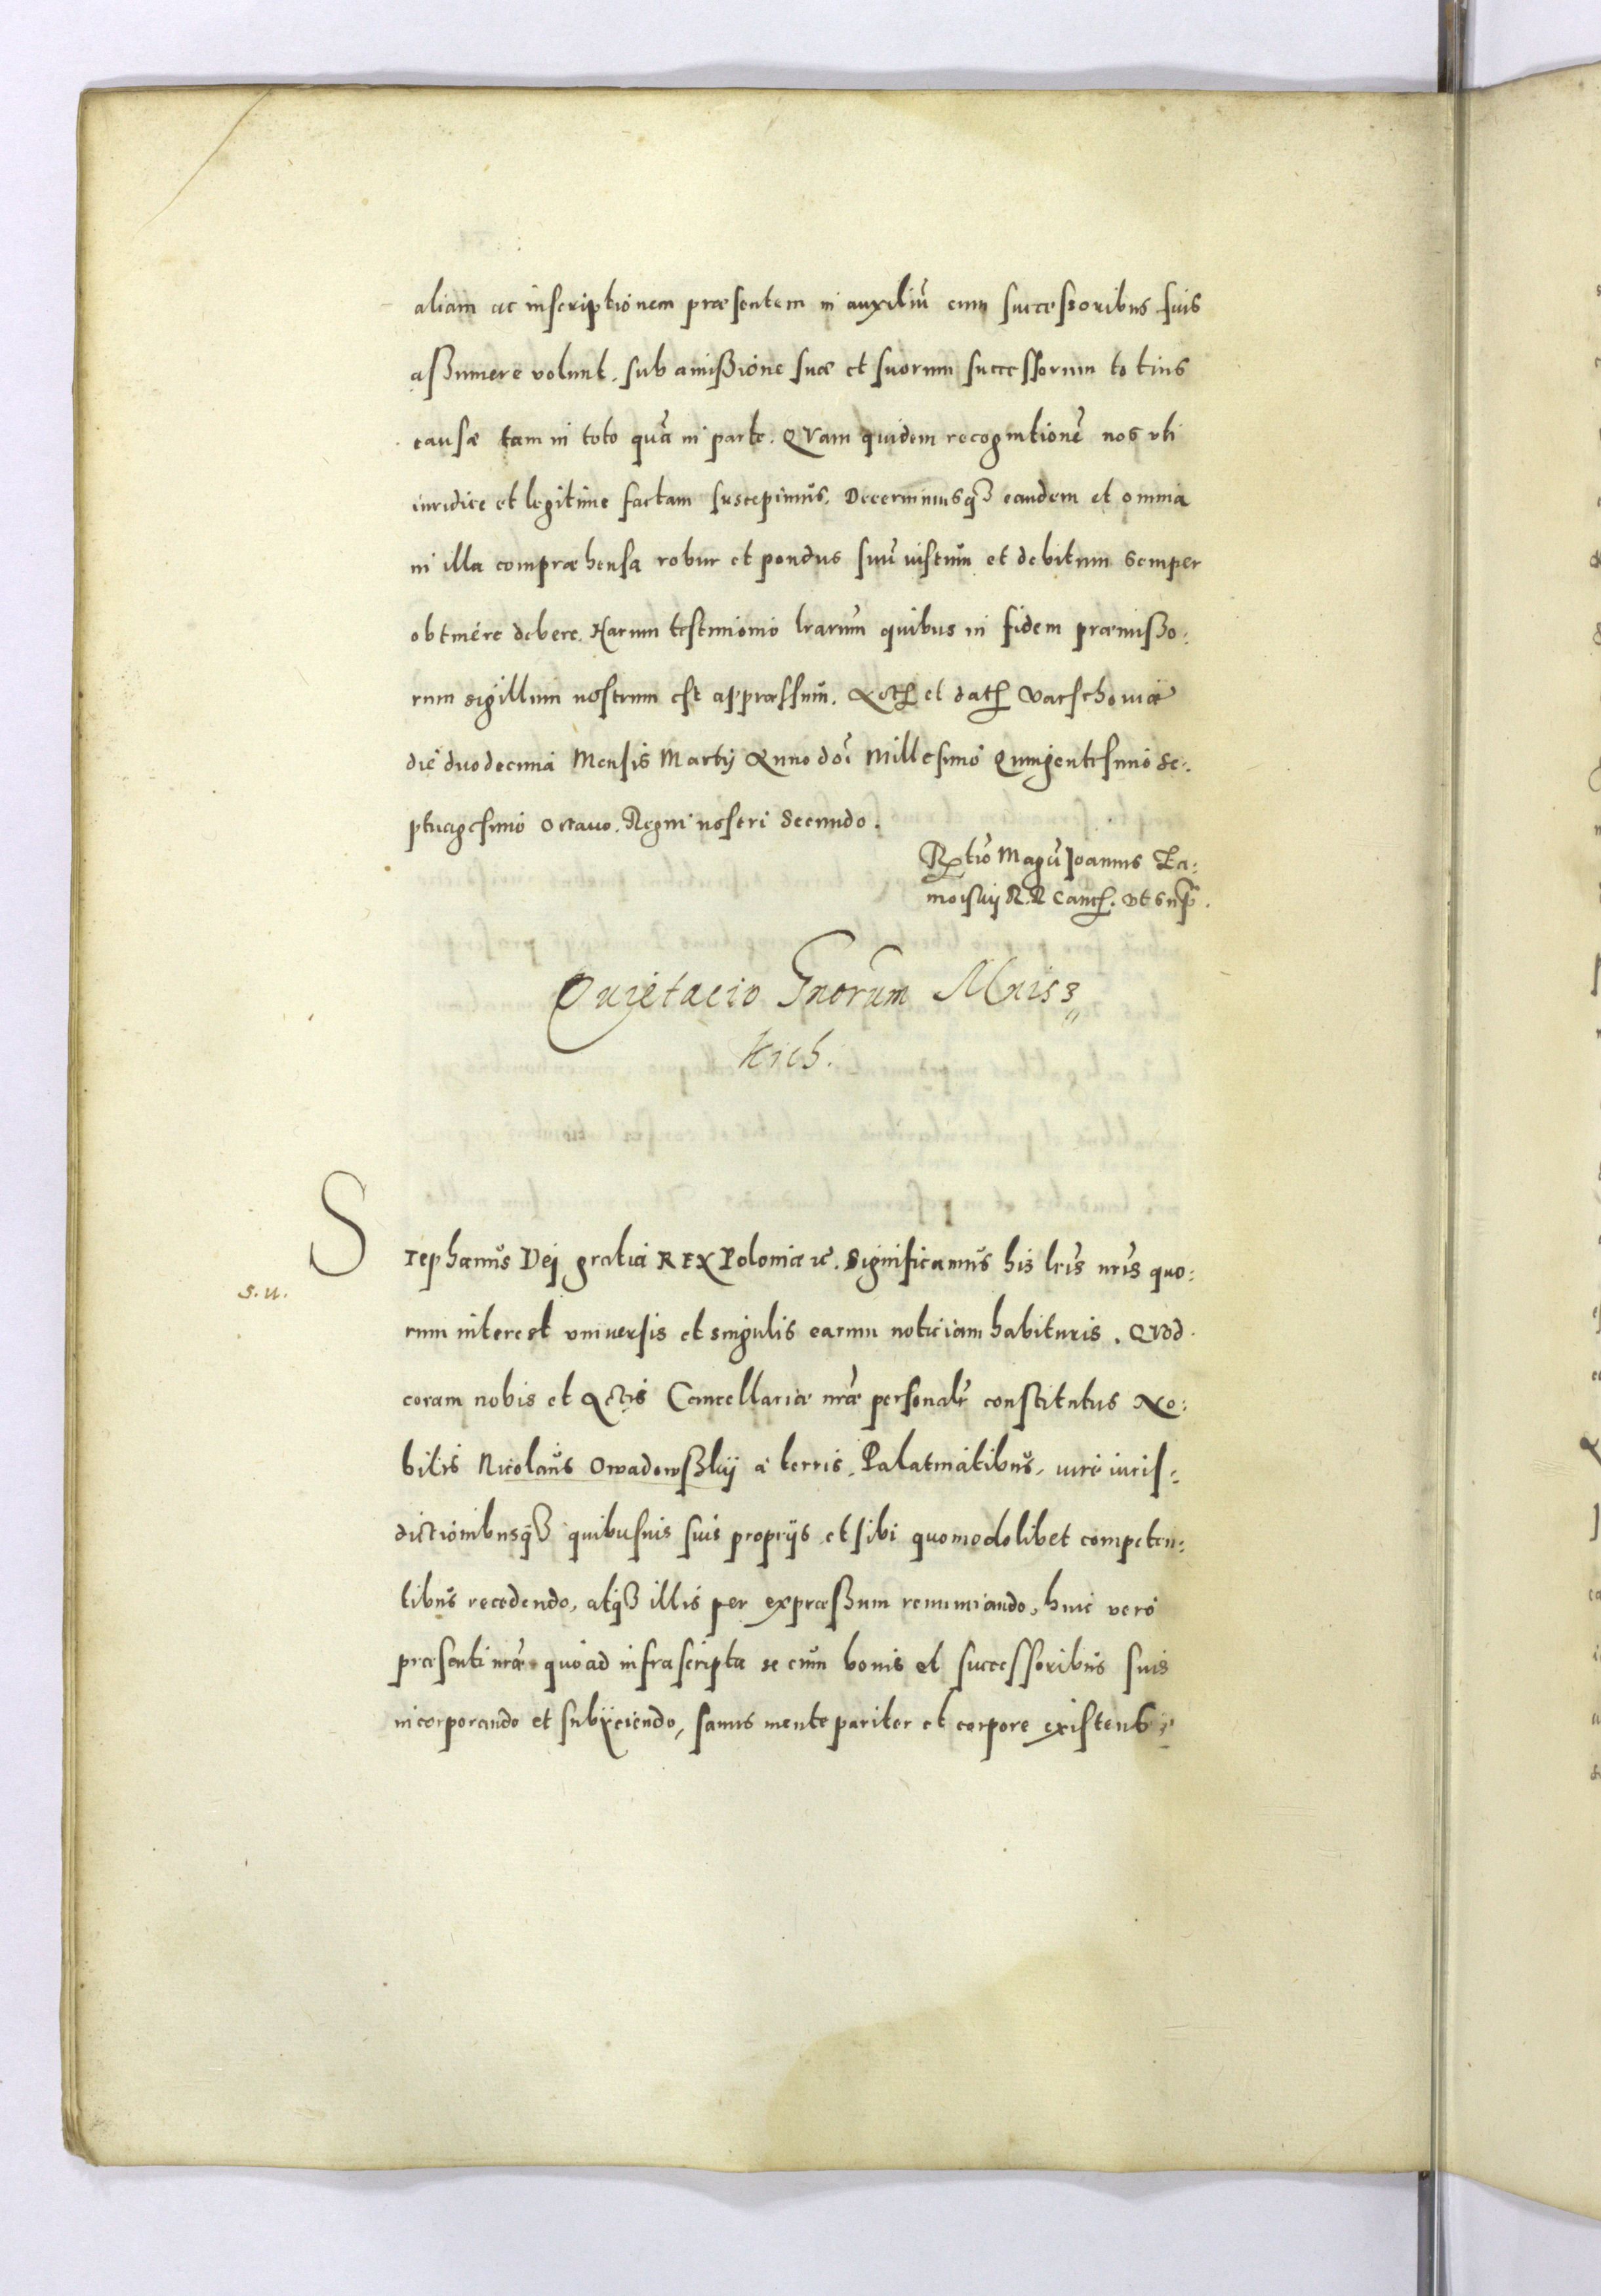 aliam ac inscriptionem præsentem in auxiliũ cum successoribus suis
aßumere volunt, sub amißione suæ et suorum successorum totius
causæ tam in toto quã in parte. QVam quidem recognitionẽ nos vti
iuridice et legitime factam suscepimus, Decernimusq₃ eandem et omnia
in illa compræhensa robur et pondus suũ iustum et debitum semper
obtinére debere. Harum testimonio lrarum quibus in fidem præmißo:
rum sigillum nostrum est appræssum. Act' et dat' Varschouiæ
die duodecima Mensis Martij Anno doĩ Millesimo Quingentesimo Se:
ptuagesimo Octauo. Regni nostri Secundo.
Rtio Magci Joannis Za:
moiskij R. P. Canc'. vt sup'.
Quietacio Gnorum Mnis₃
kich.
Stephanus Dej gratia REX Poloniæ ꝛc. Significamus his lris nris quo:
S. N.
rum interest vniuersis et singulis earum noticiam habituris. QVod
coram nobis et Actis Cancellariæ nræ personalr constitutus No:
bilis Nicolaus Owadowßkij a terris, Palatinatibus, iure iuris:
dictionibusq₃ quibusuis suis proprijs et sibi quomodolibet competen:
tibus recedendo, atq₃ illis per expræßum renunciando, huic vero
præsenti nræ quoad infrascripta se cum bonis et successoribus suis
incorporando et subÿciendo, sanus mente pariter et corpore existens